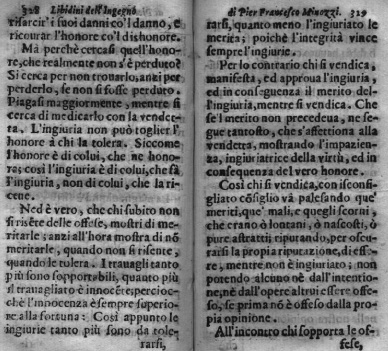 328 Libidini dell'Ingegno
risarcir'i suoi danni co'l danno, e
ricourar l'honore co'l dishonore.
Ma perche cercasi quell'hono-
re, che realmente non s'è perduto?
Si cerca per non tronarlo, anzi per
perderlo, se non si fosse perduto.
Piagasi maggiormente, mentre si
cerca di medicarlo con la vendet-
ta. L'ingiuria non può toglier l'
honore à chi la tolera. Siccome
l'honore è di colui, che ne hono-
ra; così l'ingiuria è di colui, che fà
l'ingiuria, non di colui, che la ri-
ceue.
Ned è vero, che chi subito non
si risẽte delle offese, mostri di me-
ritarle: anzi all'hora mostra di nõ
meritarle, quando non si risente,
quando le tolera. I trauagli tanto
più sono sopportabili, quanto più
il trauagliato è innocẽte, percioc-
chè l'innocenza è sempre superio-
re alla fortuna: Così appunto le
ingiurie tanto più sono da tole-
rarsi,
di Pier Francesco Minozzi. 329
rarsi, quanto meno l'ingiuriato le
merita; poiche l'integrità vince
sempre l'ingiurie.
Per lo contrario chi si vendica,
manifesta, ed approua l'ingiuria,
ed in conseguenza il merito del-
l'ingiuria, mentre si vendica. Che
se'l merito non precedeua, ne se-
gue tantosto, che s'affettiona alla
vendetta, mostrando l'impazien-
za, ingiuriatrice della virtù, ed in
consequenza del vero honore.
Così chi si vendica, con isconsi-
gliato cõsiglio và palesando que'
meriti, que' mali, e quegli scorni,
che erano ò lontani, ò nascosti, ò
pure astratti; riputando, per oscu-
rarsi la propria riputazione, d'esse-
re, mentre non è ingiuriato: non
potendo alcuno nè dall'intentio-
ne, nè dall'opere altrui essere offe-
so, se prima nõ è offeso dalla pro-
pia opinione.
All'incontro chi sopporta le of-
fese,